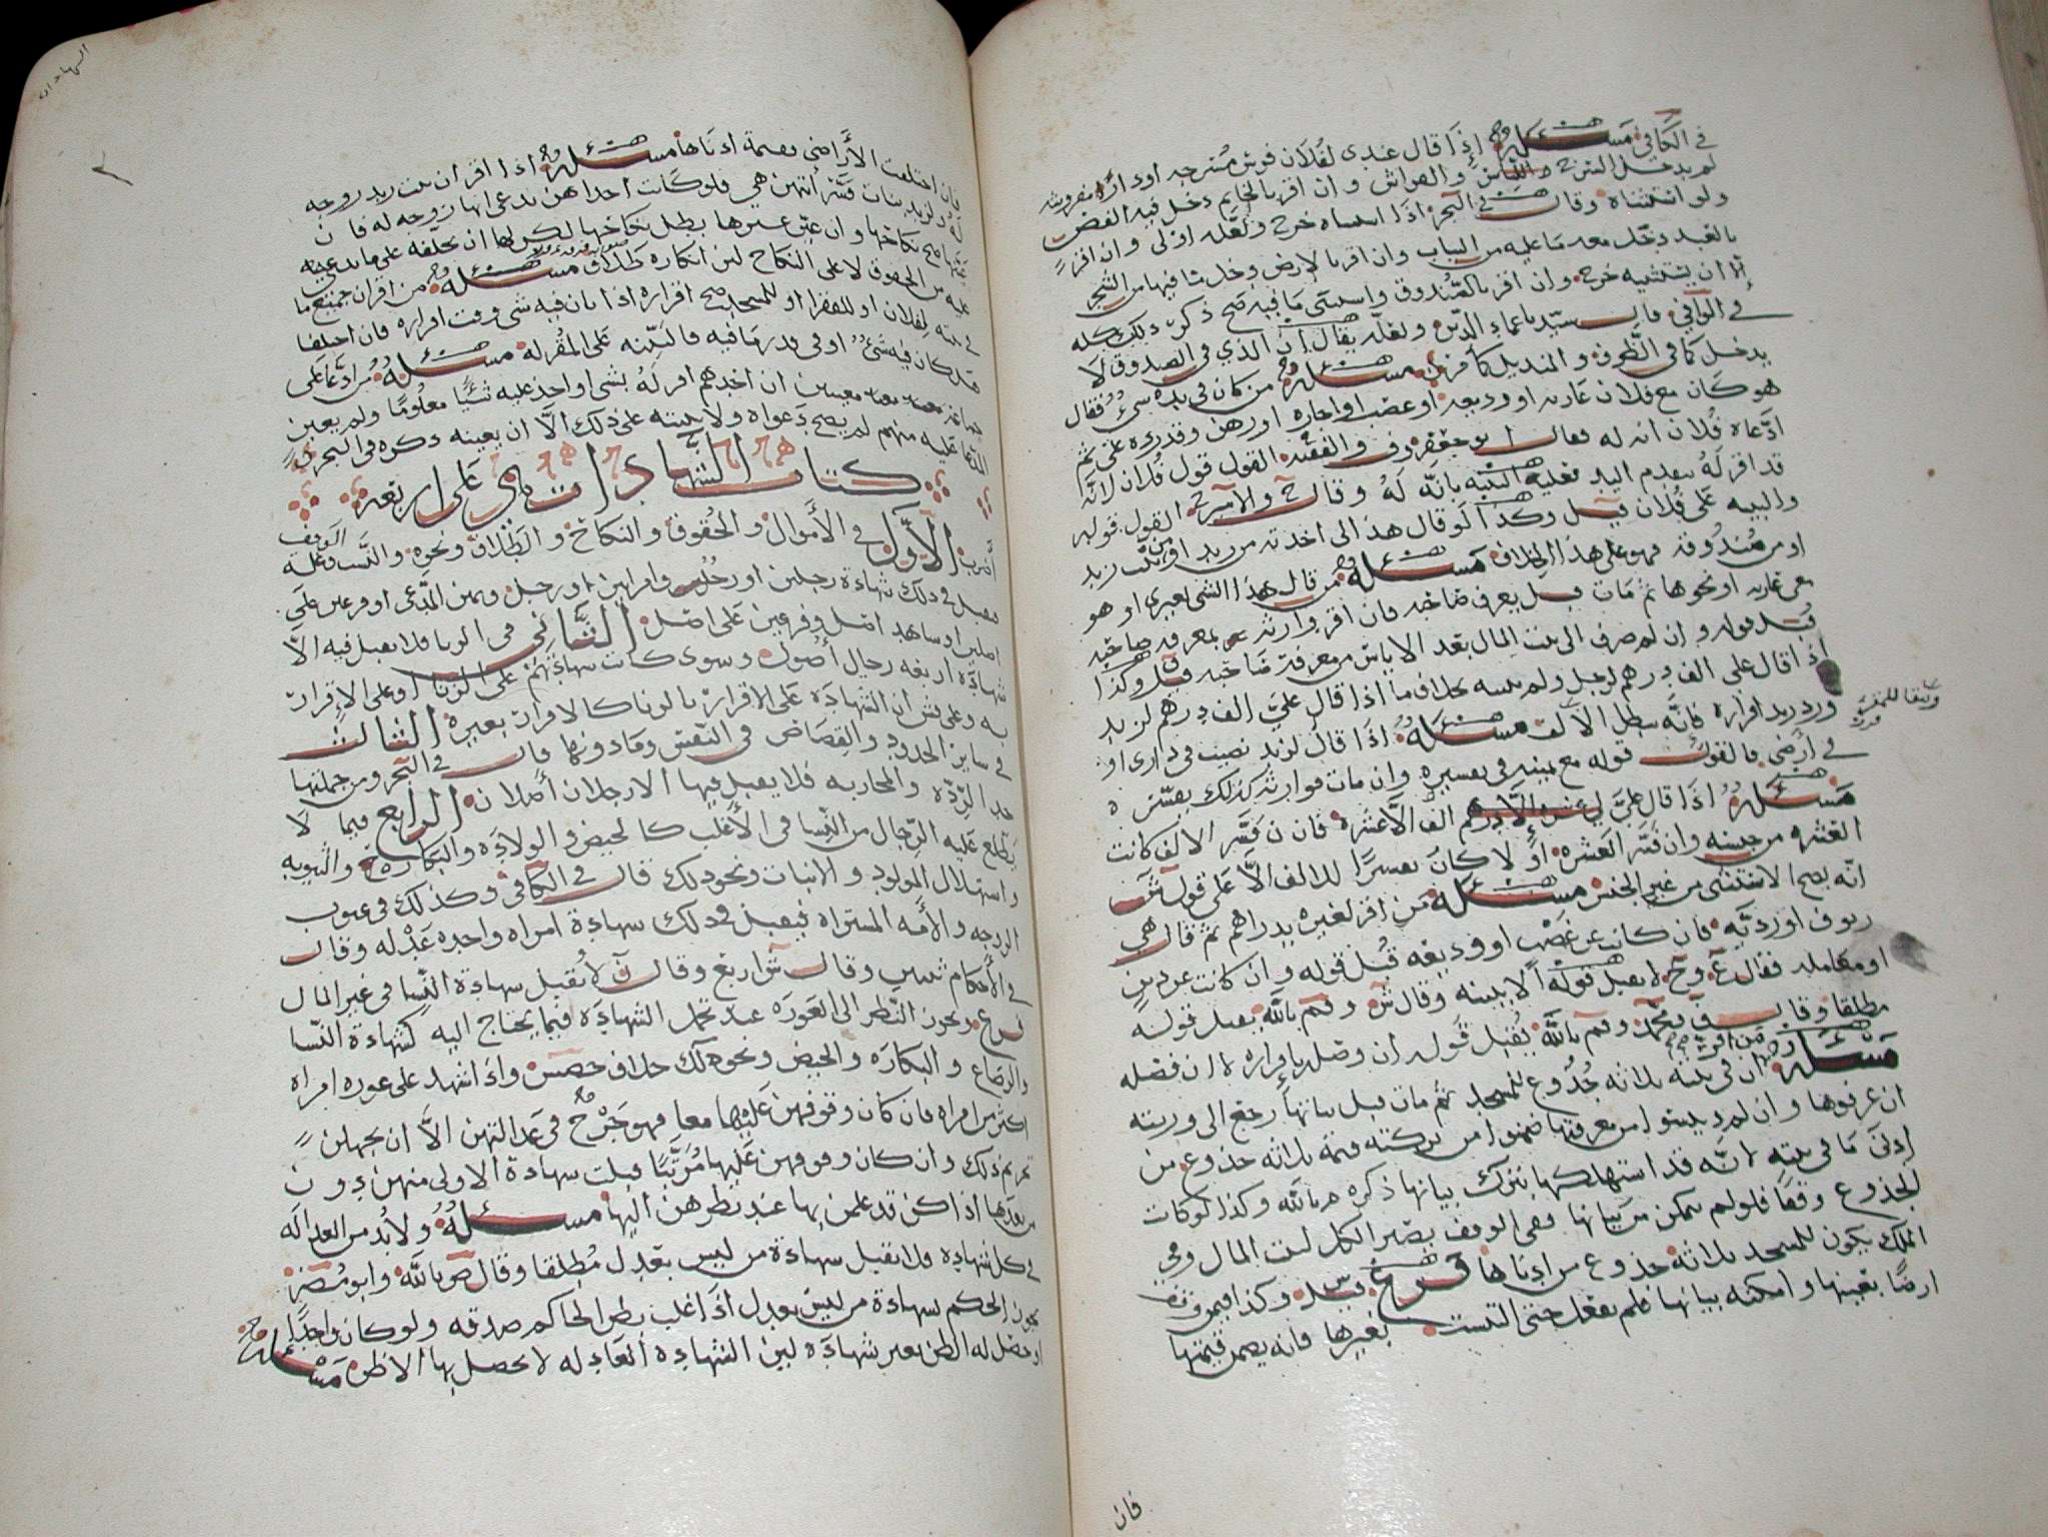 في الكافي مسئلة اذا قال عندي لفلان فرس مسرجه او دار مفروشه
لم يدخل السرج والفراش وان اقر بالخاتم دخل فيه الفص
ولو استثناه وقال في البحر اذا استثناه خرج ولعله اولى وان اقر
بالعبد دخل معه ما عليه من الثياب وان اقر بالارض دخل ما فيها من الشجر
الا ان يستثنيه خرج وان اقر بالصندوق واستثنى ما فيه صح ذكر ذلك كله
في الوافي قال سيدنا عماد الدين ولعله يقال ان الذي في الصندوق لا
يدخل كما في الظرف والمنديل كافر مسئلة من كان في يده شيء فقال
هو كان مع فلان عاريه او وديعه او غصب او اجاره او رهن وقدره على ثم
ادعاه فلان انه له فقال ابو جعفر وف والفقيه القول قول فلان لانه
قد اقر له بتقدم اليد فعليه البينه بانه له وقال ح والامير ح القول قوله
والبينه على فلان قيل وكذا لو قال هذا الى اخذته من زيد او من بيت زيد
او من صندوقه فهو على هذا الخلاف مسئلة من قال هذا الشي لغيري او هو
معي عاريه او نحوها ثم مات قبل يعرف صاحبه فان اقر وارثه بمعرفه صاحبه
قبل قوله وان لم صرف الى بيت المال بعد الاياس من معرفة صاحبه قيل وكذا
اذا قال على الف درهم لرجل ولم يعينه بخلاف ما اذا قال علي الف درهم لزيد
ورد زيد اقراره فانه يبطل الالف مسئلة اذا قال لزيد نصيب في داري او
في ارضي فالقول قوله مع يمينه في تفسيره وان مات فوارثه كذلك يفسره
مسئلة اذا قال علي لي الف الا عشره فان فسر الالف كانت
العشره من جنسه وان فسر العشره اولا كان تفسيرا للالف الا على قول ش
انه يصح الاستثنى من غير الجنس مسئلة من اقر لغيره بدراهم ثم قال هي
زيوف او رديه فان كانت عن غصب او وديعه قبل قوله وان كانت عن دين
او معامله فقال ع وح لا يقبل قوله الا ببينه وقال ش وم بالله يقبل قوله
مطلقا وقال ف ومحمد وم بالله يقبل قوله ان وصل باقراره لا ان فصله
مسئلة من اقر ان في بيته ثلاثه جذوع للمسجد ثم مات قبل بيانها رجع الى ورثته
ان عرفوها وان لم يبينوا من معرفتها ضمنوا من تركته قيمة ثلاثه جذوع من
ادنى ما في بيته لانه قد استهلكها بترك بيانها ذكره م بالله وكذا لو كانت
الجذوع وقفا فلو لم يتمكن من بيانها ففي الوقف يصير الكل لبيت المال وفي
الملك يكون للمسجد ثلاثه جذوع من ادناها فرع وكذا فيمن وقف
ارضا بعينها وامكنه بيانها فلم يفعل حتى التبست بغيرها فانه يضمن قيمتها
فان
الشهادات
فان اختلفت الأراضي فقيمة ادناها مسئلة اذا اقر ان بنت زيد زوجه
له ولزيد بنات فسر ايتهن هي فلو كانت احداهن تدعى انها زوجه له فان
عينها صح نكاحها وان عين غيرها بطل نكاحها لكن لها ان تحلفه على ما يدعيه
عليه من الحقوق لا على النكاح لان انكاره طلاق مسئلة من اقر ان جميع ما
في بيته لفلان او للفقرا او للمسجد صح اقراره اذا بان فيه شي وقت اقراره فان اختلفا
هل كان فيه شيء او في قدر ما فيه فالبينه على المقر له مسئلة من ادعا على
جماعه معينين ان احدهم اقر له بشي او اخذ عليه شيئا معلوما ولم يعين
المدعا عليه منهم لم يصح دعواه ولا بينته على ذلك الا ان يعينه ذكره في البحر
كتاب الشهادات هي على اربعة
اضرب الاول في الأموال والحقوق والنكاح والطلاق ونحوه والنسب والوقف
فيقبل في ذلك شهادة رجلين او رجل وامراتين او رجل ويمين المدعى او فرعين على
اصلين او شاهد اصل وفرعين على اصل الثاني في الزنا فلا يقبل فيه الا
شهادة اربعه رجال أصول وسوى كانت شهادتهم على الزنا او على الإقرار
به وعلى ش ان الشهادة على الاقرار بالزنا كالاقرار بغيره الثالث
في ساير الحدود والقصاص في النفس وما دونها قال في البحر ومن جملتها
حد الردة والمحاربه فلا يقبل فيها الا رجلان أصلان الرابع فيما لا
يطلع عليه الرجال من النسا في الأغلب كالحيض والولادة والبكارة والثيوبه
واستهلال المولود والانبات ونحو ذلك قال في الكافي وكذلك في عيوب
الزوجه والأمه المشتراه فيقبل في ذلك شهادة امراه واحده عدله وقال
في الأحكام ثنتين وقال ش اربع وقال ن لا تقبل شهادة النسا في غير المال
فرع ويجوز النظر الى العوره عند تحمل الشهاده فيما يحتاج اليه كشهادة النسا
والرضاع والبكاره والحيض ونحو ذلك خلاف واذا شهد على عوره امراه
اكثر من امراه فان كان وقوفهن عليها معا فهو جرح في عدالتهن الا ان يجهلن
تحريم ذلك وان كان وقوفهن عليها مرتبا قبلت شهادة الاولى منهن دون
من بعدها اذا كن قد علمن بها عند نظرهن اليها مسئلة ولا بد من العداله
في كل شهاده فلا تقبل شهادة من ليس بعدل مطلقا وقال ص بالله وابو مضر
يجوز الحكم بشهادة من ليس بعدل اذا غلب بظن الحاكم صدقه ولو كان واحدا
او حصل له الظن بغير شهاده لان الشهاده العادله لا يحصل بها الا ظن مسئلة